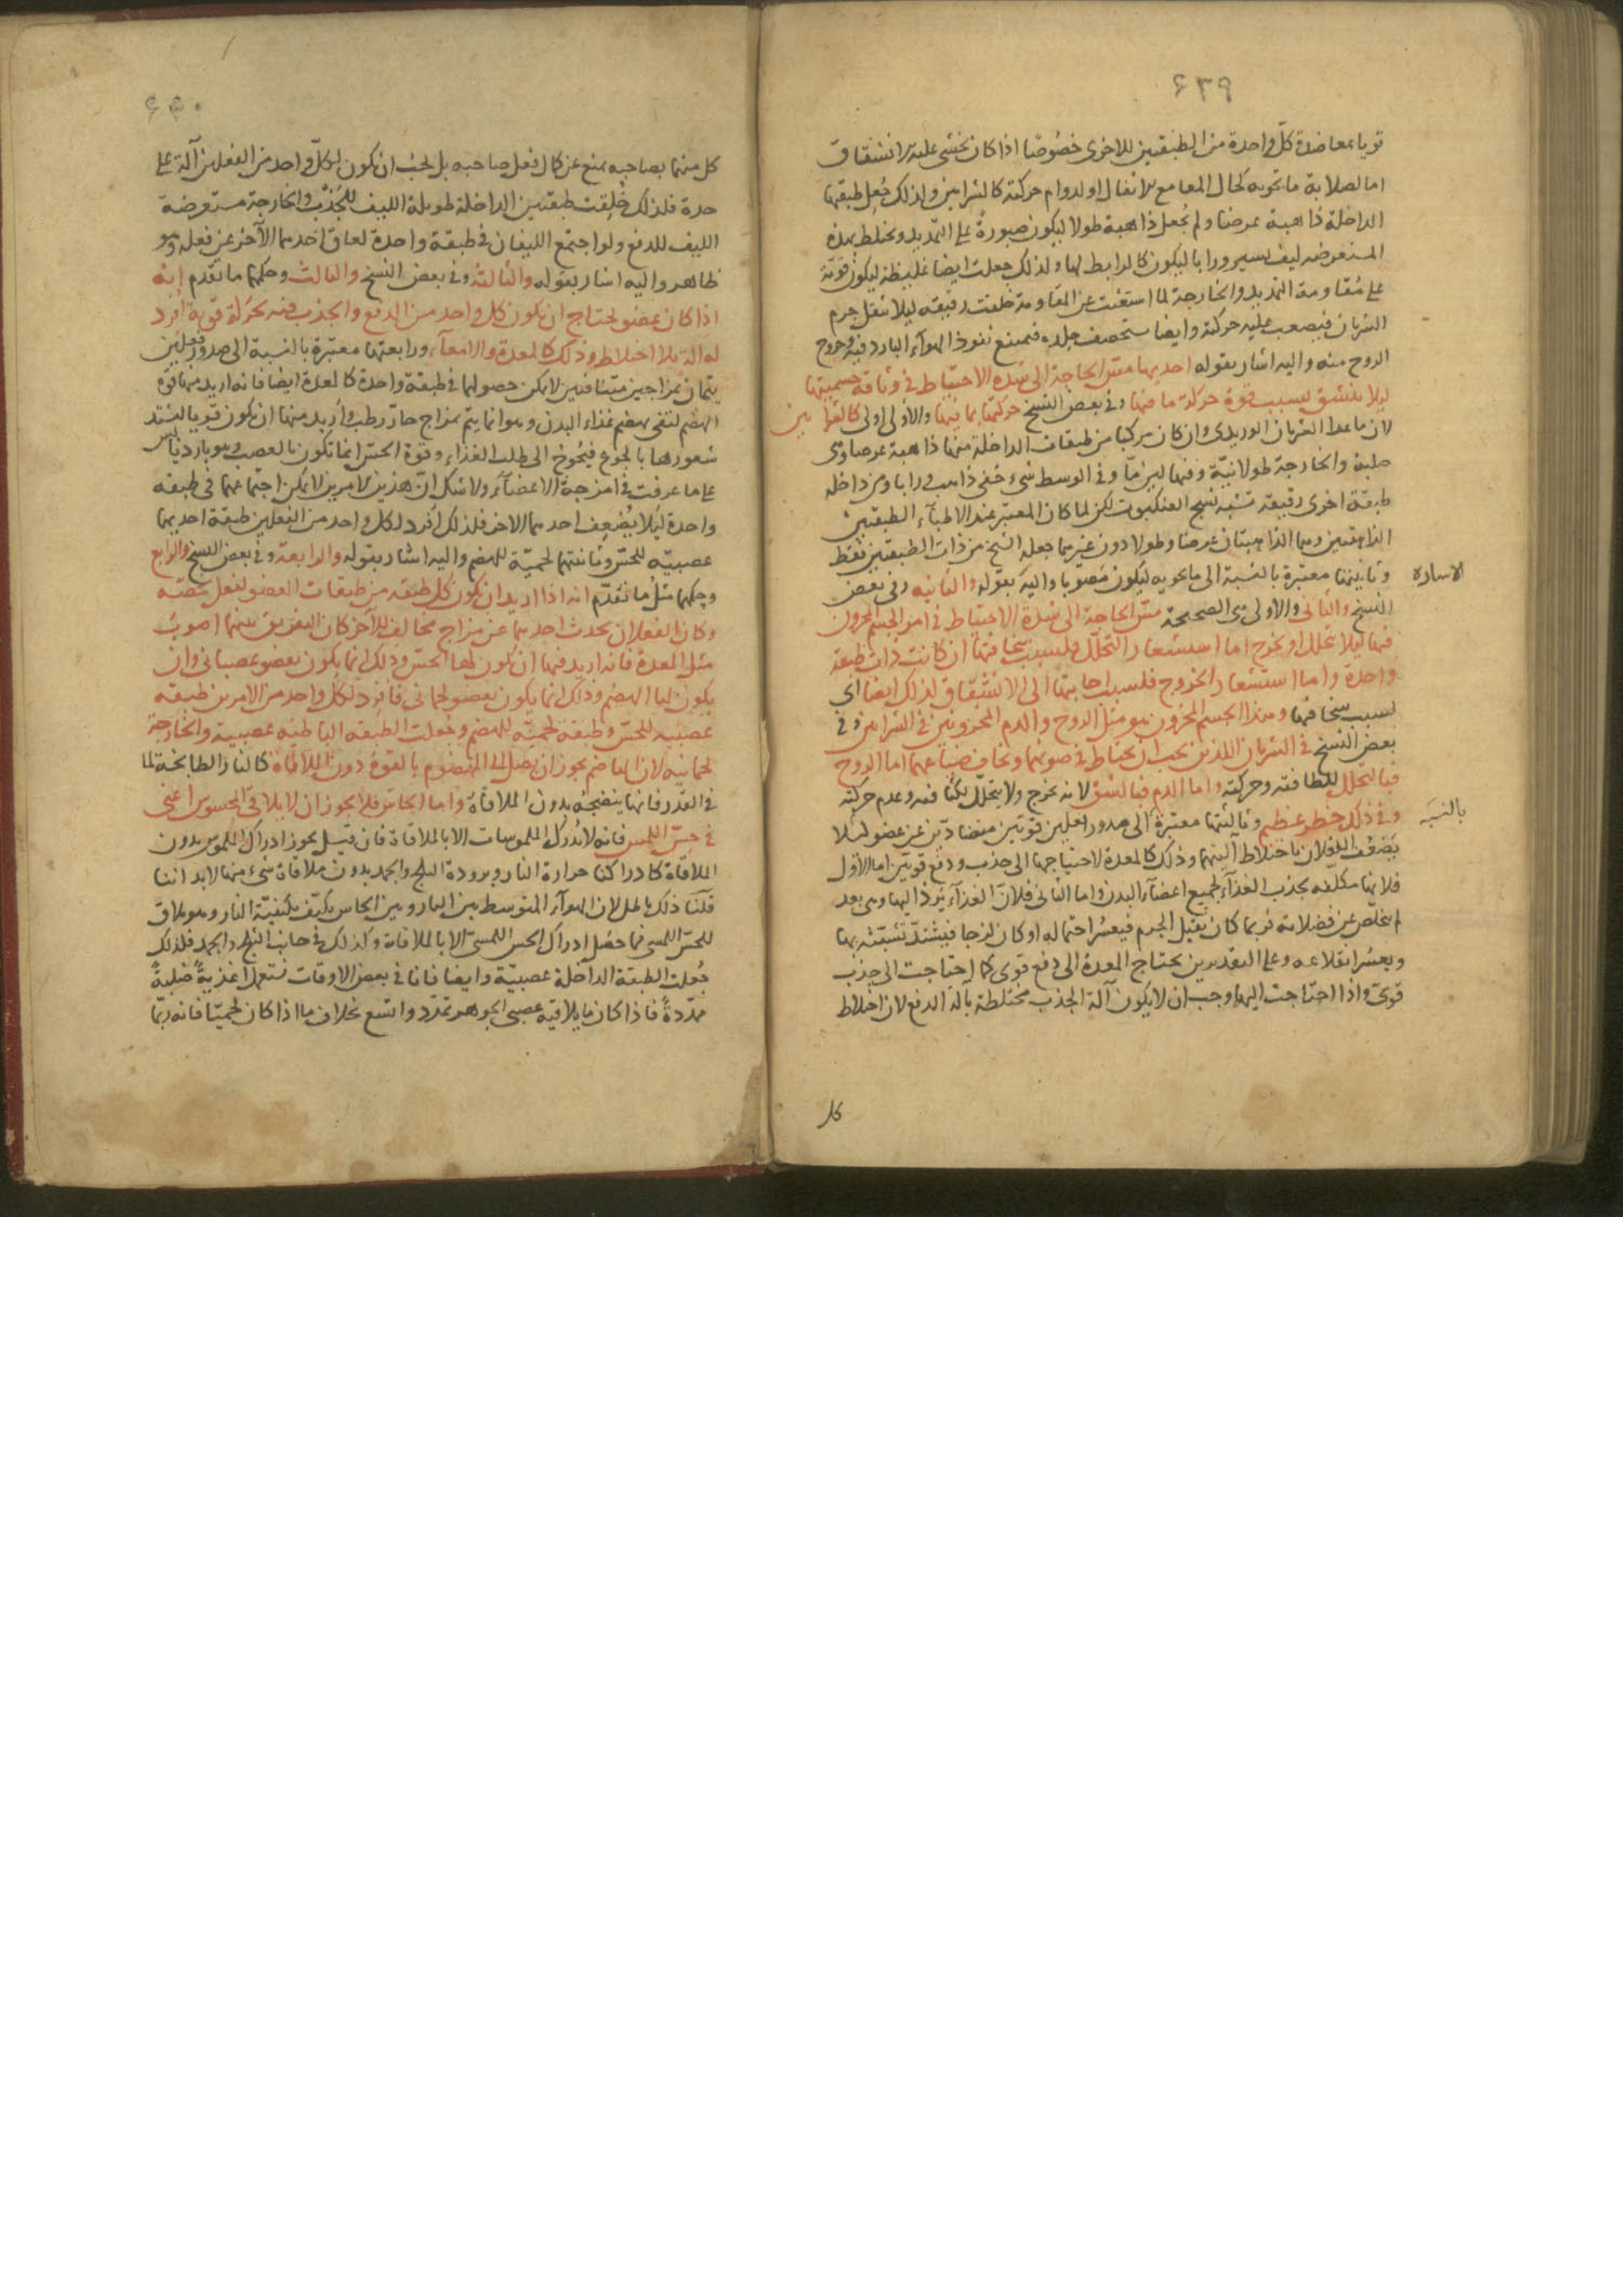 ٦٣٩
قويا بمعاضدة كل واحدة من الطبقتين للاخرى خصوصا اذا كان يخشى عليه الانشقاق
اما لصلابة ما تحويه كحال المعا مع الاثفال او لدوام حركته كالشرايين ولذلك جعل طبقتها
الداخلة ذاهبة عرضا ولم يجعل ذاهبة طولا ليكون صبورة على التمديد ويختلط بهذه
المتعرضه ليف يسير ورابا ليكون كالرابط لها ولذلك جعلت ايضا غليظة ليكون قوية
على مقاومة التمديد والخارجة لما استغنت عن المقاومة خلقت رقيقه ليلا يثقل جرم
الشريان فيصعب عليه حركته وايضا يستحصف جلده فيمنع نفوذ الهواء البارد فيه وخروج
الروح منه واليه اشار بقوله احديها مس الحاجة الى شدة الاحتياط فى وثاقة جسميتها
ليلا ينشق بسبب قوة حركة ما فيها وفى بعض النسخ حركتها بما فيها والاول اولى كالشرايين
لان ما عدا الشريان الوريدى وان كان مركبا من طبقات الداخلة منها ذاهبة عرضا وهى
صلبة والخارجة طولانية وفيها لين ما وفى الوسط شىء خفى ذاهب ورابا ومن داخله
طبقة اخرى رقيقة تشبه نسج العنكبوت لكن لما كان المعتبر عند الاطباء الطبقتين
الذاهبتين وهما الذاهبتان عرضا وطولا دون غيرهما جعله الشيخ من ذات الطبقتين فقط
وثانيتها معتبرة بالنسبة الى ما تحويه ليكون مصونا واليه بقوله والثانيه وفى بعض
الاشارة
النسخ والثانى والاولى هى الصحيحة مس الحاجة الى شدة الاحتياط فى امر الجسم المخزون
فيها ليلا يتحلل او يخرج اما استشعار التحلل فلسبب سخافتها ان كانت ذات طبقة
واحدة واما استشعار الخروج فلسبب اجابتها الى الانشقاق لذلك ايضا اى
لسبب سخافتها وهذا الجسم المخزون هو مثل الروح والدم المخزونين فى الشرايين وفى
بعض النسخ فى الشريان اللذين يجب ان يحتاط فى صونهما ويخاف ضياعهما اما الروح
فبالتحلل للطافته وحركته واما الدم فبالشق لانه يخرج ولا يتحلل لكثافته وعدم حركته
وفى ذلك خطر عظيم وثالثتها معتبرة الى صدور فعلين قويين متضادين عن عضو ليلا
بالنسبه
يضعف الفعلان باختلاط آليتهما وذلك كالمعدة لاحتياجها الى جذب ودفع قويين اما الاول
فلانها مكلفه بجذب الغذاء لجميع اعضاء البدن واما الثانى فلان الغذاء يرد اليها وهى بعد
لم يتخلص عن فضلاته فربما كان ثقيل الجرم فيعسر احتماله او كان لزجا فيشتد تشبثه بها
ويعسر انقلاعه وعلى التقديرين يحتاج المعدة الى دفع قوى كما احتاجت الى جذب
قوى واذا احتاجت اليهما وجب ان لا يكون آلة الجذب مختلطة بآلة الدفع لان اختلاط
كل
٦٤٠
كل منهما بصاحبه يمنع عن كمال فعل صاحبه بل يجب ان يكون لكل واحد من الفعلين آلة على
حدة فلذلك خلقت طبقتين الداخلة طويلة الليف للجذب والخارجة مستعرضة
الليف للدفع ولو اجتمع الليفان فى طبقة واحدة لعاق احدهما الآخر عن فعله وهو
ظاهر واليه اشار بقوله والثالثة وفى بعض النسخ والثالث وحكمها ما تقدم انه
اذا كان عضو يحتاج ان يكون كل واحد من الدفع والجذب فيه بحركة قوية افرد
له آلة بلا اختلاط وذلك كالمعدة والامعاء ورابعتها معتبرة بالنسبة الى صدور فعلين
يتمان بمزاجين متنافيين لا يمكن حصولهما فى طبقة واحدة كالمعدة ايضا فانه اريد منها قوة
الهضم لتفى بهضم غذاء البدن وهو انما يتم بمزاج حار رطب واريد منها ان يكون قويا ليشتد
شعورها بالجوع فيحوج الى طلب الغذاء وقوة الحس انما تكون بالعصب وهو بارد يابس
على ما عرفت فى امزجة الاعضاء ولا شك ان هذين الامرين لا يمكن اجتماعهما فى طبقة
واحدة ليلا يضعف احدهما الاخر فلذلك افرد لكل واحد من الفعلين طبقة احديهما
عصبيه للحس وثانيتهما لحمية للهضم واليه اشار بقوله والرابعة وفى بعض النسخ والرابع
وحكمها مثل ما تقدم انه اذا اريد ان يكون كل طبقه من طبقات العضو لفعل يخصه
وكان الفعلان يحدث احدهما عن مزاج مخالف للآخر كان التفريق بينهما اصوب
مثل المعدة فانه اريد فيها ان يكون لها الحس وذلك انما يكون بعضو عصبانى وان
يكون لها الهضم وذلك انما يكون بعضو لحمانى فافرد لكل واحد من الامرين طبقه
عصبيه للحس وطبقة لحميه للهضم وجعلت الطبقه الباطنه عصبية والخارجة
لحمانيه لان الهاضم يجوز ان يصل الى المهضوم بالقوة دون الملاقاة كالنار الطابخة لما
فى القدر فانها ينضجه بدون الملاقاة واما الحاس فلا يجوز ان لا يلاقى المحسوس اعنى
فى حس اللمس فانه لا يدرك الملموسات الا بالملاقاة فان قيل يجوز ادراك الملموس بدون
الملاقاة كادراكنا حرارة النار وبرودة الثلج والجمد بدون ملاقاة شىء منها لابداننا
قلنا ذلك باطل لان الهواء المتوسط بين النار وبين الحاس يكيف بكيفية النار وهو ملاق
للحس اللمسى فما حصل ادراك الحس اللمسى الا بالملاقاة وكذلك فى جانب الثلج والجمد فلذلك
جعلت الطبقة الداخلة عصبية وايضا فانا فى بعض الاوقات نستعمل اغذية صلبة
ممددة فاذا كان ما يلاقيه عصبى الجوهر تمدد واتسع بخلاف ما اذا كان لحميا فانه ربما